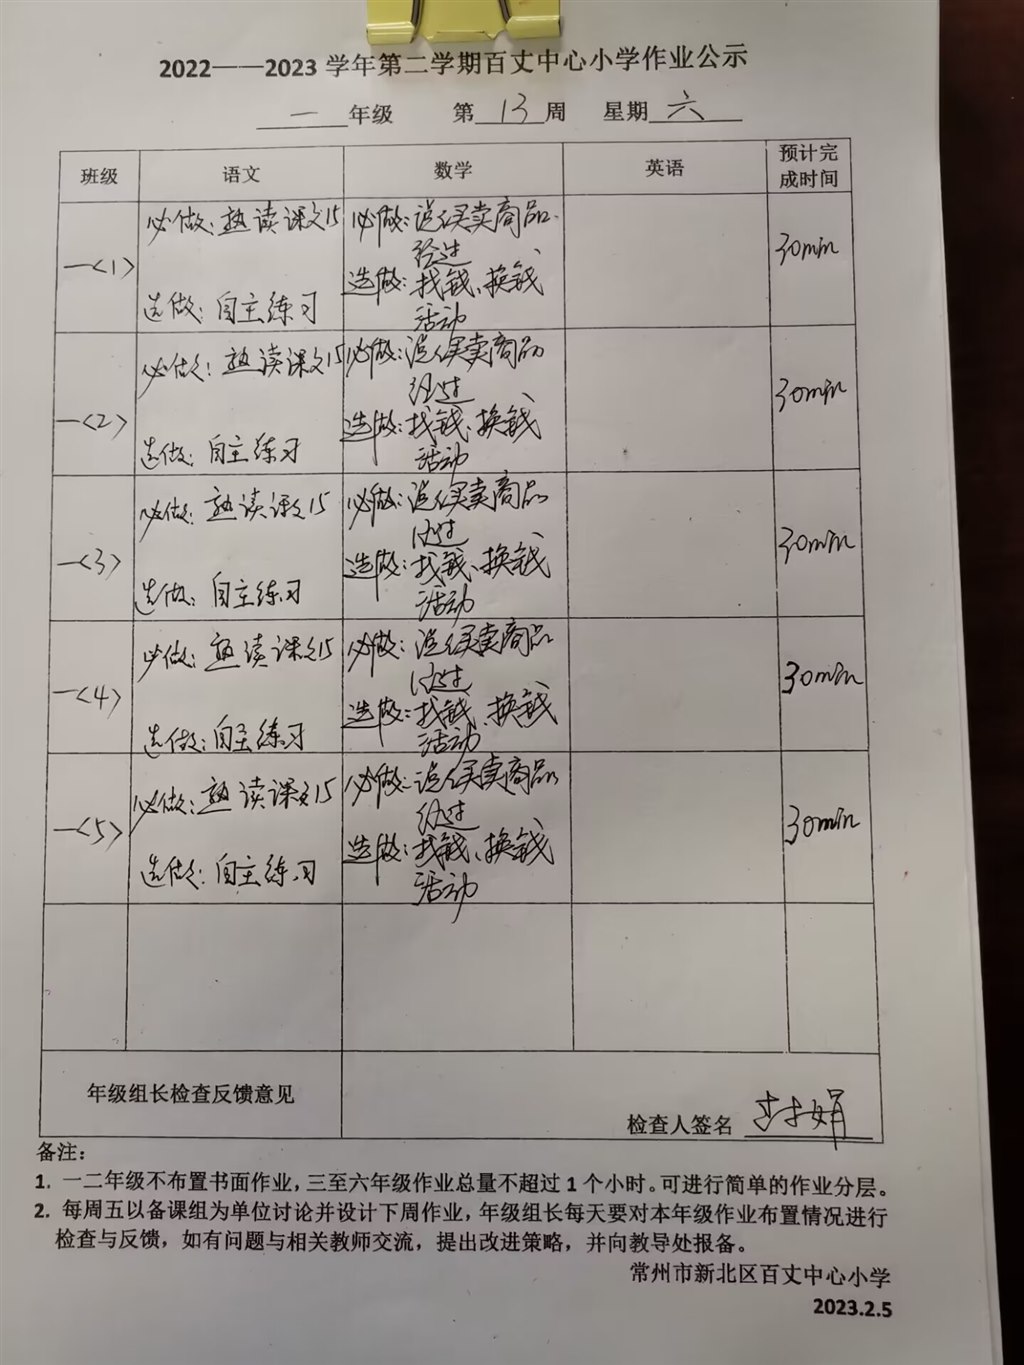 2022——2023 学年第二学期百丈中心小学作业公示
一 年级 第 13 周 星期 六
班级 语文 数学 英语 预计完成时间
一<1> 必做：熟读课文15 必做：说（买卖商品
经过 30min
选做：自主练习 选做：找钱、换钱
活动
一<2> 必做：熟读课文15 必做：说（买卖商品
经过 30min
选做：自主练习 选做：找钱、换钱
活动
一<3> 必做：熟读课文15 必做：说（买卖商品
经过 30min
选做：自主练习 选做：找钱、换钱
活动
一<4> 必做：熟读课文15 必做：说（买卖商品
经过 30min
选做：自主练习 选做：找钱、换钱
活动
一<5> 必做：熟读课文15 必做：说（买卖商品
经过 30min
选做：自主练习 选做：找钱、换钱
活动
年级组长检查反馈意见
检查人签名 娟
备注：
1. 一二年级不布置书面作业，三至六年级作业总量不超过 1 个小时。可进行简单的作业分层。
2. 每周五以备课组为单位讨论并设计下周作业，年级组长每天要对本年级作业布置情况进行
检查与反馈，如有问题与相关教师交流，提出改进策略，并向教导处报备。
常州市新北区百丈中心小学
2023.2.5